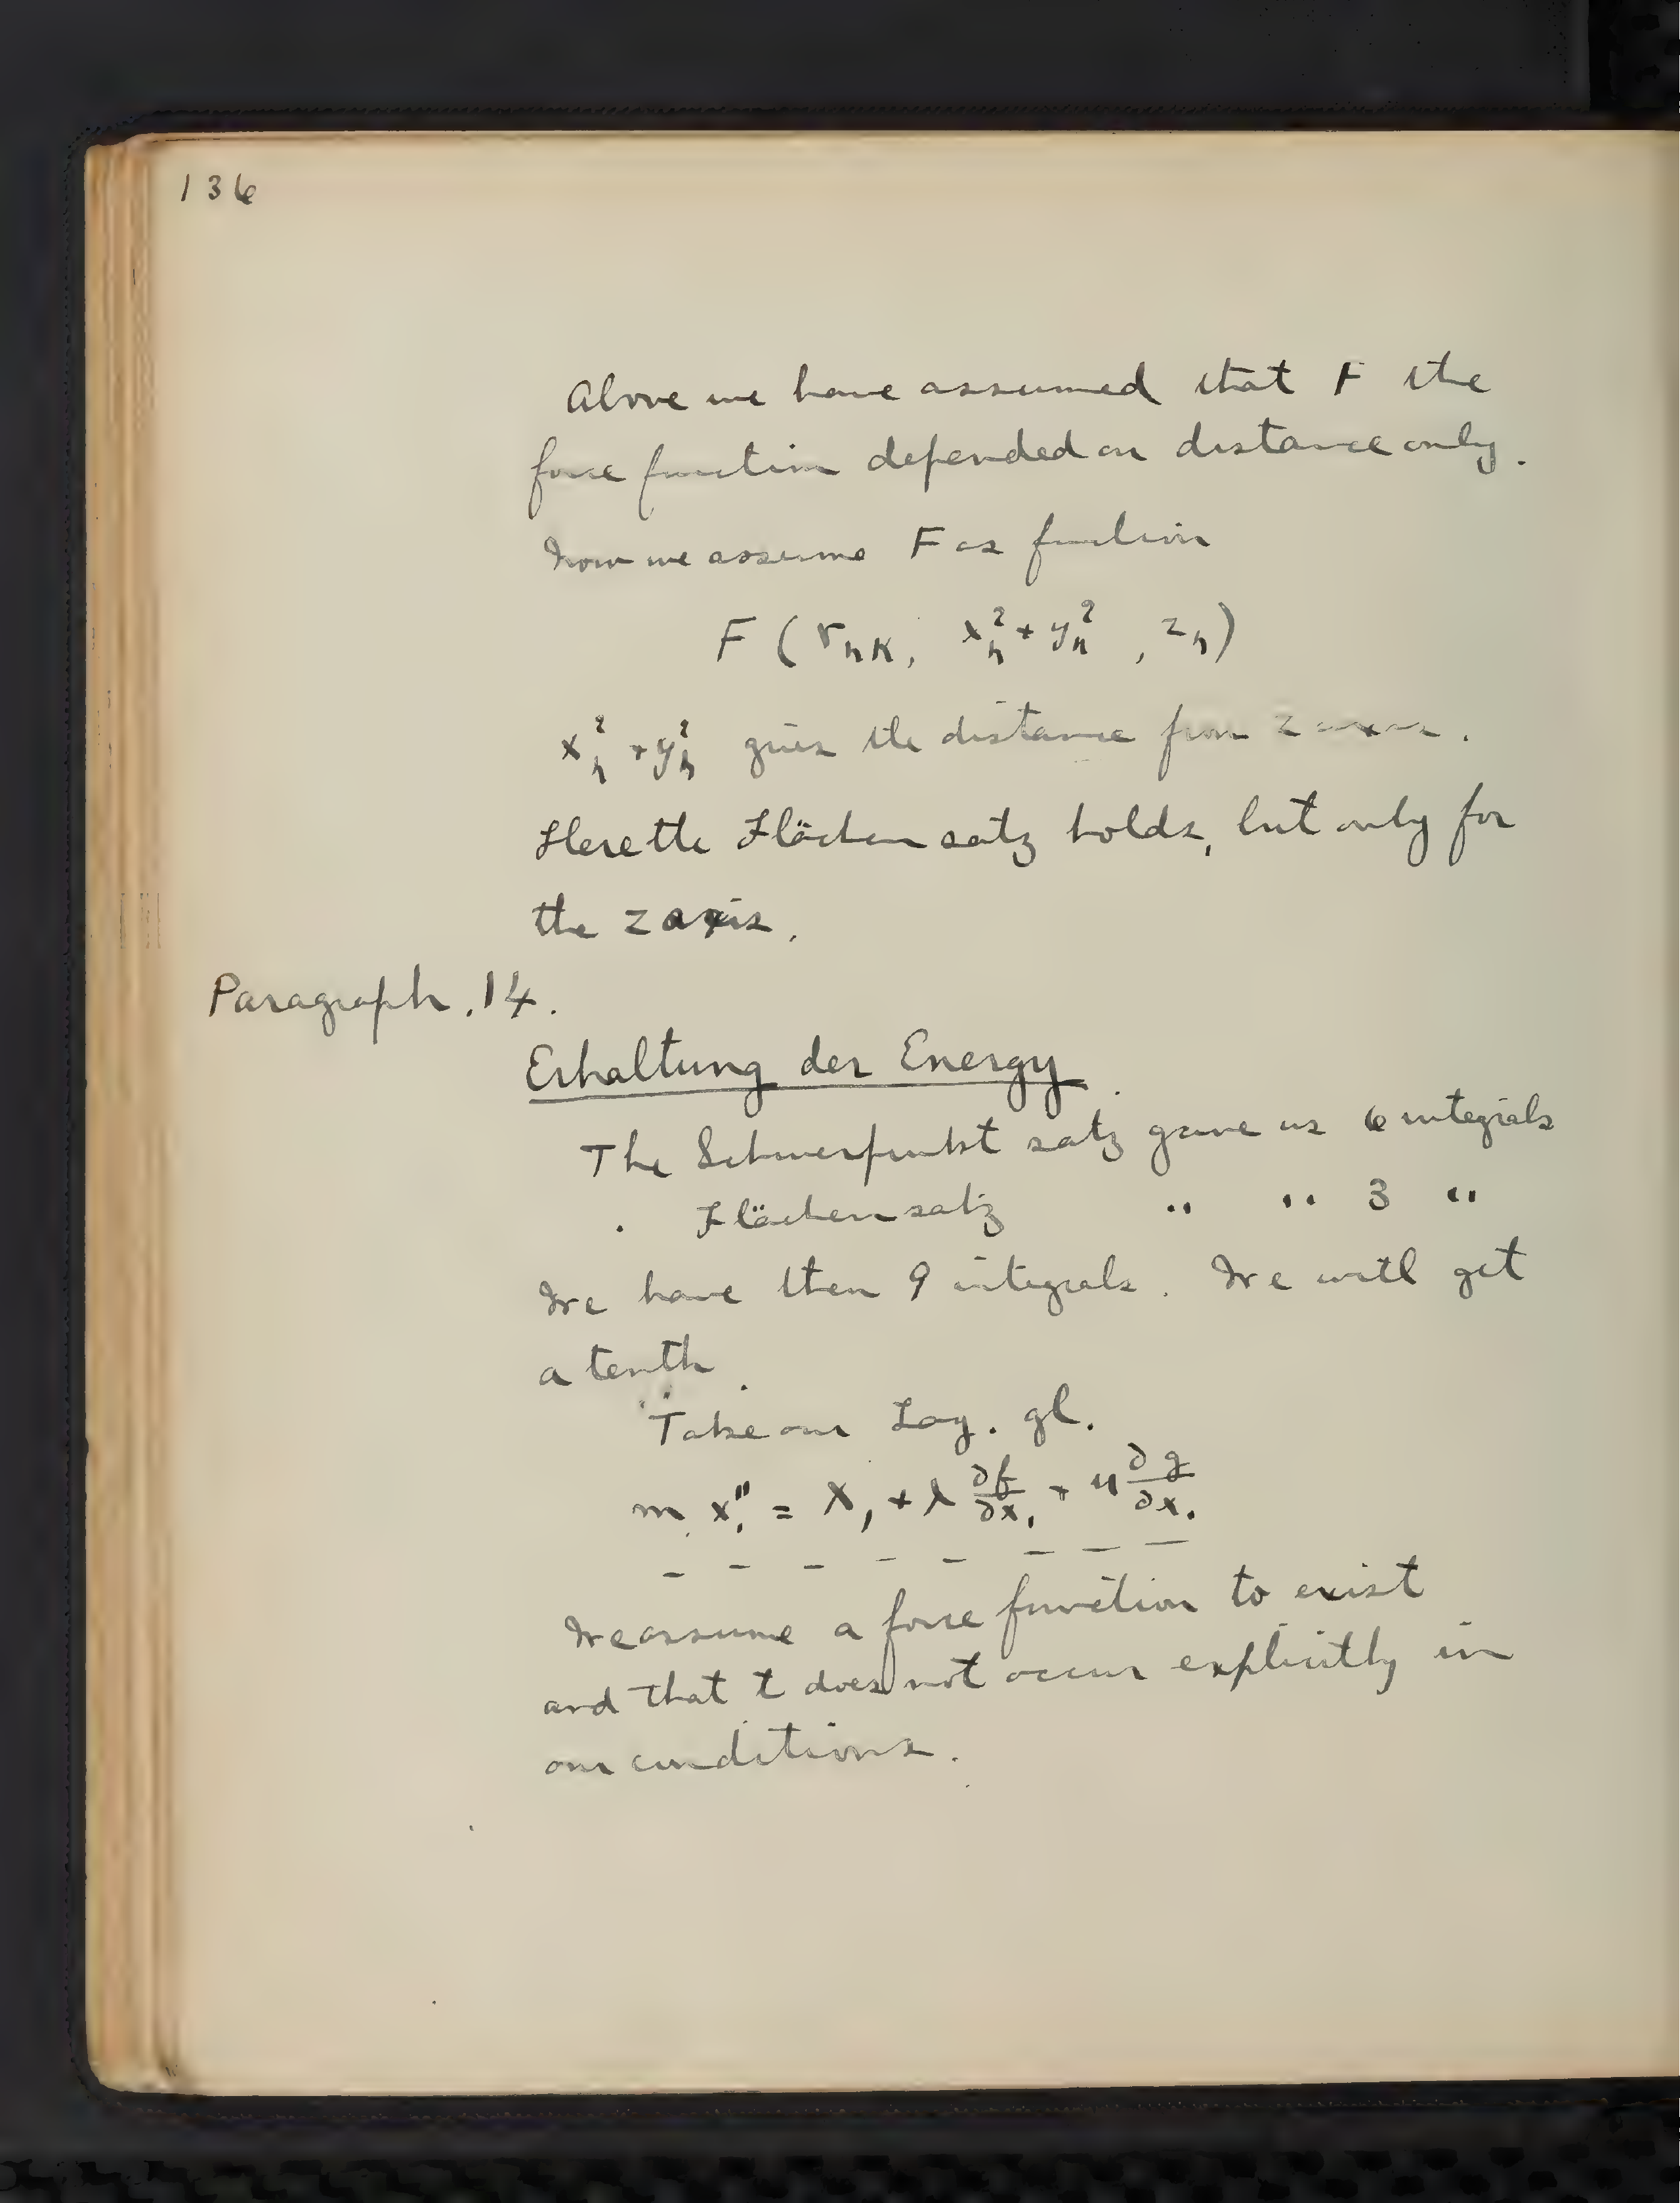 136
Above we have assumed that F the
force function depended on distance only.
Now we assume F as function
F ( r_hk, x_h^2 + y_h^2 , z_h)
x_h^2 + y_h^2 gives the distance from z axis.
Here the Flächensatz holds, but only for
the z axis.
Paragraph. 14.
Erhaltung der Energy.
The Schwerpunkt satz gave us 6 integrals
" Flächensatz " " 3 "
We have then 9 integrals. We will get
a tenth.
Take our Lag. gl.
m_1 x_1'' = X_1 + λ ∂f/∂x_1 + μ ∂g/∂x_1
— — — — — — — —
We assume a force function to exist
and that t does not occur explicitly in
our conditions.